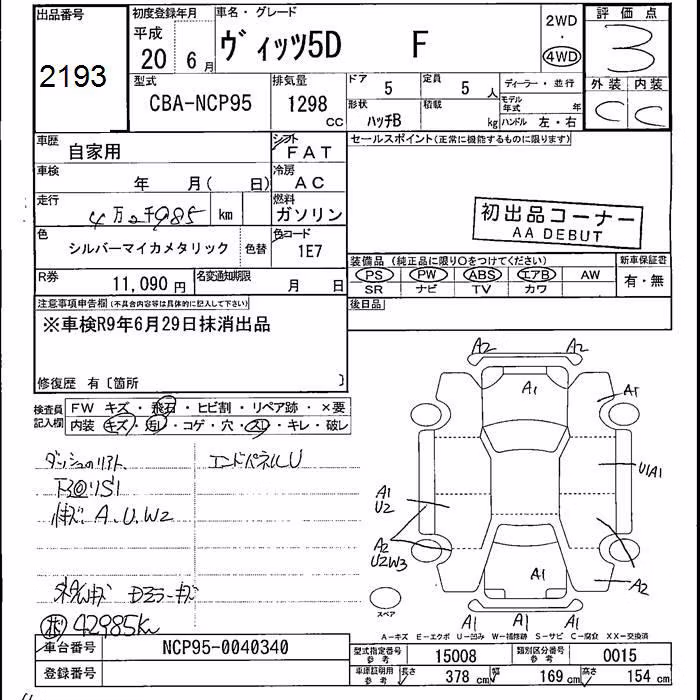 出品番号 初度登録年月 車名・グレード 2WD 評価点
平成 20年 6月 ヴィッツ5D F 4WD 3
2193
型式 排気量 ドア 5 定員 5人 ディーラー・並行 外装 内装
CBA-NCP95 1298cc 形状 ハッチB 積載 kg モデル年式 年 C C
ハンドル 左・右
車歴 自家用 シフト FAT セールスポイント(正常に機能するものに限ります)
車検 年 月( 日) 冷房 AC
走行 4万2千985 km 燃料 ガソリン 初出品コーナー
AA DEBUT
色 シルバーマイカメタリック 色替 色コード 1E7
装備品(純正品に限り○をつけてください) 新車保証書
R券 11,090円 名変通知期限 月 日 PS PW ABS エアB AW 有・無
SR ナビ TV カワ
注意事項申告欄(不具合内容等は具体的に記入して下さい) 後日品
※車検R9年6月29日抹消出品
修復歴 有〔箇所 〕
検査員記入欄 FW キズ・飛石・ヒビ割・リペア跡・×要
内装 キズ・汚し・コゲ・穴・スレ・キレ・破レ
エンドパネルU
A.U.W2
42985km
A2 A2
A1
A1
U2
U1A1
A2
U2W3
A1
A2
A1 A1 A1
スペア
A-キズ E-エクボ U-凹み W-補修跡 S-サビ C-腐食 XX-交換済
車台番号 NCP95-0040340 型式指定番号参考 15008 類別区分番号参考 0015
登録番号 車庫証明用参考 長さ 378 cm 幅 169 cm 高さ 154 cm